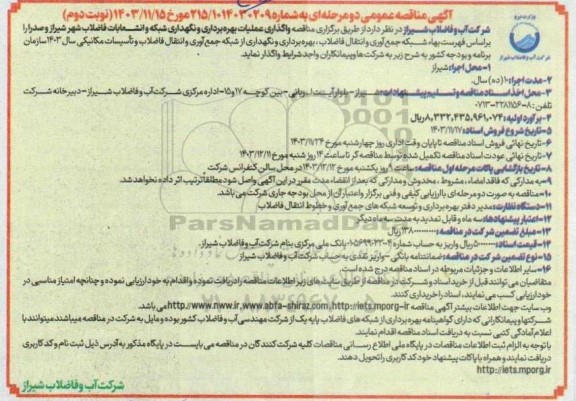 آگهی مناقصه عمومی دو مرحله‌ای به شماره ۲۱۵/۱۰۱۴۰۳۰۲۰۹ مورخ ۱۴۰۳/۱۱/۱۵ (نوبت دوم)
شرکت آب و فاضلاب شیراز در نظر دارد از طریق برگزاری مناقصه واگذاری عملیات بهره‌برداری و نگهداری شبکه و انشعابات فاضلاب شهر شیراز و صدرا را
براساس فهرست بهاء شبکه جمع‌آوری و انتقال فاضلاب، بهره‌برداری و نگهداری از شبکه جمع‌آوری و انتقال فاضلاب و تأسیسات مکانیکی سال ۱۴۰۳ سازمان
برنامه و بودجه کشور به شرح زیر به شرکت‌ها و پیمانکاران واجد شرایط واگذار نماید.
۱- محل اجرا: شیراز
۲- مدت اجرا: ۱۰ (ده) سال.
۳- محل اخذ اسناد مناقصه و تسلیم پیشنهادات: شیراز- بلوار آیت‌ا... ربانی- بین کوچه ۱۷ و ۱۵- اداره مرکزی شرکت آب و فاضلاب شیراز- دبیرخانه شرکت
تلفن: ۸-۳۲۲۸۱۱۵۶-۰۷۱
۴- برآورد اولیه: ۸,۳۳۲,۴۳۵,۹۶۱,۰۷۴ ریال
۵- تاریخ شروع فروش اسناد: ۱۴۰۳/۱۱/۱۷
۶- تاریخ نهائی فروش اسناد مناقصه تا پایان وقت اداری روز چهارشنبه مورخ ۱۴۰۳/۱۱/۲۴
۷- تاریخ نهائی عودت اسناد مناقصه تکمیل شده توسط مناقصه گر تا ساعت ۱۴ روز شنبه مورخ ۱۴۰۳/۱۲/۱۱
۸- تاریخ بازگشایی پاکات مرحله اول مناقصه: ساعت ۸ روز یکشنبه مورخ ۱۴۰۳/۱۲/۱۲ در محل سالن کنفرانس شرکت
۹- به مدارکی که فاقد امضاء، مشروط، مخدوش و مدارکی که بعد از انقضاء مدت مقرر در این آگهی واصل شود مطلقاً ترتیب اثر داده نخواهد شد.
۱۰- مناقصه به صورت دو مرحله‌ای با ارزیابی کیفی و فنی برگزار و اعتبار آن از محل بودجه جاری شرکت می باشد.
۱۱- دستگاه نظارت: مدیر دفتر بهره‌برداری و توسعه شبکه های جمع آوری و خطوط انتقال فاضلاب
۱۲- اعتبار پیشنهادها: سه ماه و قابل تمدید به مدت سه ماه دیگر
۱۳- مبلغ تضمین شرکت در مناقصه: ریال
۱۴- قیمت اسناد: ریال واریز به حساب شماره بانک ملی مرکزی بنام شرکت آب و فاضلاب شیراز.
۱۵- نوع تضمین شرکت در مناقصه: ضمانتنامه بانکی - واریز نقدی به حساب شرکت آب و فاضلاب شیراز
۱۶- سایر اطلاعات و جزئیات مربوطه در اسناد مناقصه درج شده است.
متقاضیان می توانند قبل از خرید اسناد و شرکت در مناقصه از طریق سایت های زیر اطلاعات مناقصه را دریافت نموده و اقدام به خود ارزیابی نموده و چنانچه امتیاز مناسبی در
خودارزیابی کسب می نمایند، اسناد را خریداری کنند.
وب سایت جهت اطلاعات بیشتر آگهی مناقصه http://www.nww.ir www.abfa-shiraz.com, http://iets.mporg-ir می باشد.
شرکتها و پیمانکارانی که دارای گواهینامه بهره‌برداری از شبکه های فاضلاب پایه یک از شرکت مهندسی آب و فاضلاب کشور بوده و مایل به شرکت در مناقصه میباشند میتوانند با
اعلام آمادگی کتبی نسبت به دریافت اسناد مناقصه اقدام نمایند.
با توجه به الزام ثبت اطلاعات مناقصات در پایگاه ملی اطلاع رسانی مناقصات کلیه شرکت کنندگان در مناقصه می بایست در پایگاه مذکور به آدرس ذیل ثبت نام و کد کاربری
دریافت نمایند و همراه با پاکات پیشنهاد خود کد کاربری را تحویل دهند.
http://iets.mporg.ir
شرکت آب و فاضلاب شیراز